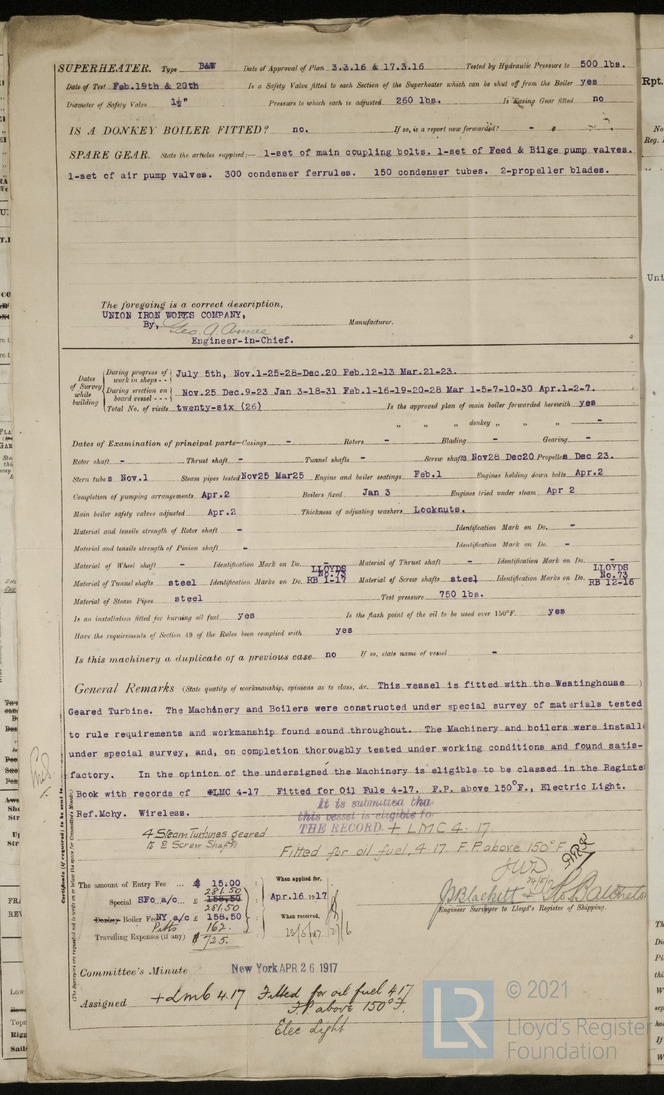 SUPERHEATER. Type B&W Date of Approval of Plan 3.3.16 & 17.3.16 Tested by Hydraulic Pressure to 500 lbs.
Date of Test Feb.19th & 20th Is a Safety Valve fitted to each Section of the Superheater which can be shut off from the Boiler yes
Diameter of Safety Valve 1½" Pressure to which each is adjusted 260 lbs. Is Easing Gear fitted no
IS A DONKEY BOILER FITTED? no. If so, is a report now forwarded? -
SPARE GEAR. State the articles supplied:— 1-set of main coupling bolts. 1-set of Feed & Bilge pump valves.
1-set of air pump valves. 300 condenser ferrules. 150 condenser tubes. 2-propeller blades.
The foregoing is a correct description,
UNION IRON WORKS COMPANY,
By, Manufacturer.
Engineer-in-Chief.
Dates of Survey while building
During progress of work in shops - - July 5th, Nov.1-25-28-Dec.20 Feb.12-13 Mar.21-23.
During erection on board vessel - - - Nov.25 Dec.9-23 Jan 3-18-31 Feb.1-16-19-20-28 Mar 1-5-7-10-30 Apr.1-2-7.
Total No. of visits twenty-six (26) Is the approved plan of main boiler forwarded herewith yes
" " " donkey " " " -
Dates of Examination of principal parts—Casings - Rotors - Blading - Gearing -
Rotor shaft - Thrust shaft - Tunnel shafts - Screw shafts Nov28 Dec20 Propellers Dec 23.
Stern tubes Nov.1 Steam pipes tested Nov25 Mar25 Engine and boiler seatings Feb.1 Engines holding down bolts Apr.2
Completion of pumping arrangements Apr.2 Boilers fixed Jan 3 Engines tried under steam Apr 2
Main boiler safety valves adjusted Apr.2 Thickness of adjusting washers Locknuts.
Material and tensile strength of Rotor shaft - Identification Mark on Do. -
Material and tensile strength of Pinion shaft - Identification Mark on Do. -
Material of Wheel shaft - Identification Mark on Do. - Material of Thrust shaft - Identification Mark on Do. -
Material of Tunnel shafts steel Identification Marks on Do. LLOYDS No.73 RB 1-17 Material of Screw shafts steel Identification Marks on Do. LLOYDS No.73 RB 12-16
Material of Steam Pipes steel Test pressure 750 lbs.
Is an installation fitted for burning oil fuel yes Is the flash point of the oil to be used over 150°F. yes
Have the requirements of Section 49 of the Rules been complied with yes
Is this machinery a duplicate of a previous case no If so, state name of vessel -
General Remarks (State quality of workmanship, opinions as to class, &c. This vessel is fitted with the Westinghouse
Geared Turbine. The Machinery and Boilers were constructed under special survey of materials tested
to rule requirements and workmanship found sound throughout. The Machinery and boilers were install
under special survey, and, on completion thoroughly tested under working conditions and found satis-
factory. In the opinion of the undersigned the Machinery is eligible to be classed in the Registe
Book with records of LMC 4-17 Fitted for Oil Fule 4-17. F.P. above 150°F., Electric Light.
Ref.Mchy. Wireless.
It is submitted tha
this vessel is eligible to
THE RECORD. + LMC 4. 17
4 Steam Turbines geared
to 2 Screw Shafts
Fitted for oil fuel, 4.17. F.P. above 150°F.
The amount of Entry Fee ... 15.00 When applied for,
281.50
Special SFo a/c... £ 158.50 Apr.16 1917
281.50
Donkey Boiler Fee NY a/c £ 158.50 When received,
Pitts 162.
Travelling Expenses (if any) $ 725.
Engineer Surveyor to Lloyd's Register of Shipping.
Committee's Minute New York APR 26 1917
Assigned + LMC 4.17 Fitted for oil fuel 4.17
F.P. above 150°F.
Elec Light
© 2021
LR
Lloyd's Register
Foundation